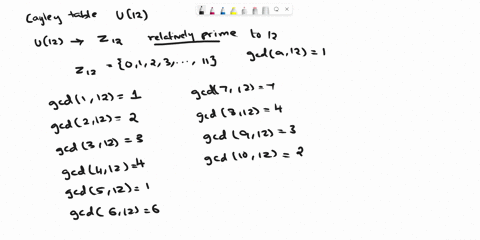 Cayley table U(12)
U(12) → Z12 relatively prime to 12
Z12 = {0,1,2,3,..., 11} gcd(a,12) = 1
gcd(1,12) = 1
gcd(2,12) = 2
gcd(3,12) = 3
gcd(4,12) = 4
gcd(5,12) = 1
gcd(6,12) = 6
gcd(7,12) = 7
gcd(8,12) = 4
gcd(9,12) = 3
gcd(10,12) = 2